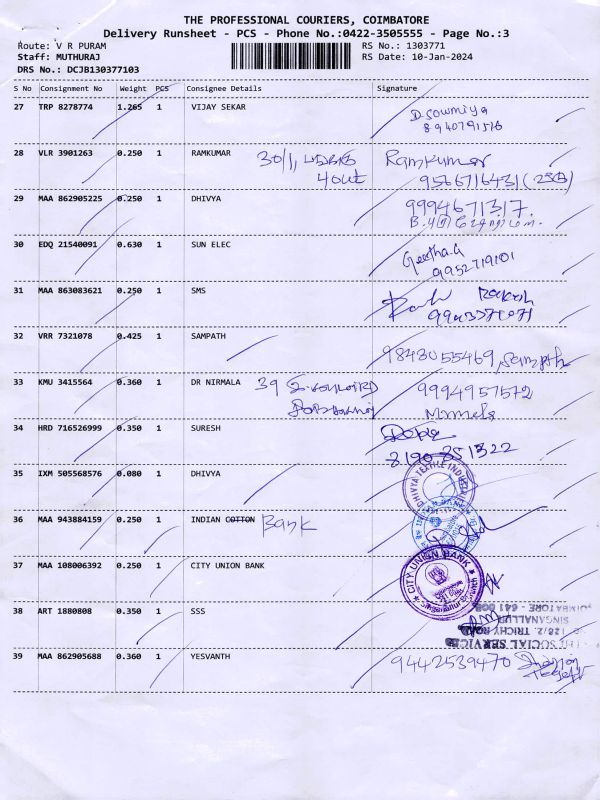 THE PROFESSIONAL COURIERS, COIMBATORE
Delivery Runsheet - PCS - Phone No.:0422-3505555 - Page No.:3
Route: V R PURAM RS No.: 1303771
Staff: MUTHURAJ RS Date: 10-Jan-2024
DRS No.: DCJB130377103
S No Consignment No Weight PCS Consignee Details Signature
27 TRP 8278774 1.265 1 VIJAY SEKAR D.Sowmiya
8940791516
28 VLR 3901263 0.250 1 RAMKUMAR 30/1, Ramkumar
9566716431
29 MAA 862905225 0.250 1 DHIVYA 9994671317.
30 EDQ 21540091 0.630 1 SUN ELEC Geetha.G
9952719101
31 MAA 863083621 0.250 1 SMS Rakesh
32 VRR 7321078 0.425 1 SAMPATH 9843055469, Sampath
33 KMU 3415564 0.360 1 DR NIRMALA 39 9994957572
34 HRD 716526999 0.350 1 SURESH
8190851322
35 IXM 505568576 0.080 1 DHIVYA DHIVYA TEXTILE
36 MAA 943884159 0.250 1 INDIAN COTTON Bank
37 MAA 108006392 0.250 1 CITY UNION BANK CITY UNION BANK
Singanallur Branch
38 ART 1880808 0.350 1 SSS SOCIAL SERVICE
128/2, TRICHY ROAD
SINGANALLUR
COIMBATORE - 641 005
39 MAA 862905688 0.360 1 YESVANTH 9442539470